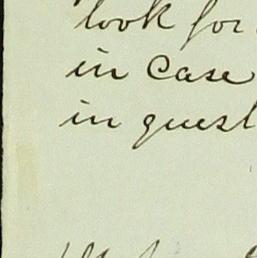 look for
in case
in quest